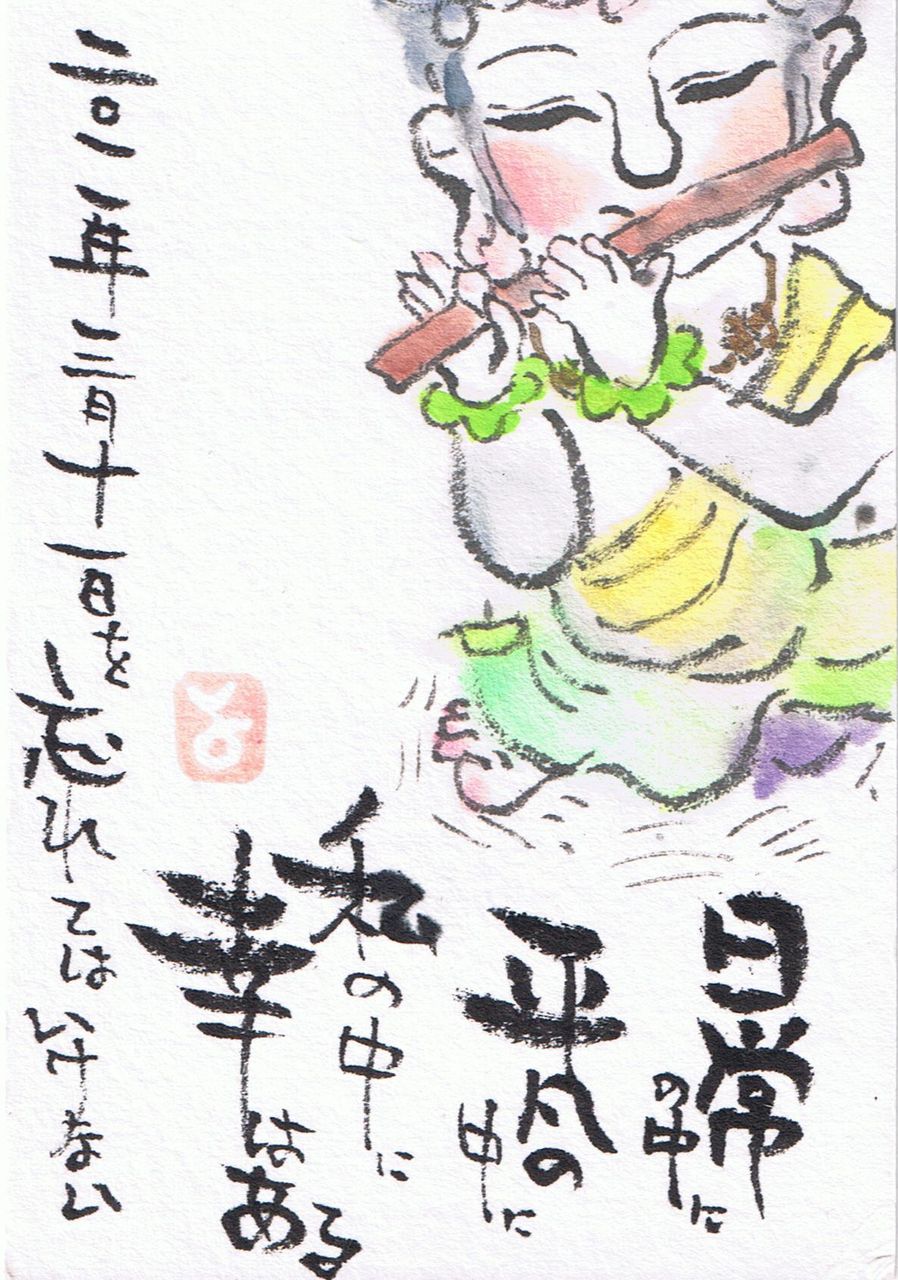 日常の中に
平凡の中に
私の中に
幸はある
二〇一一年三月十一日を忘れてはいけない